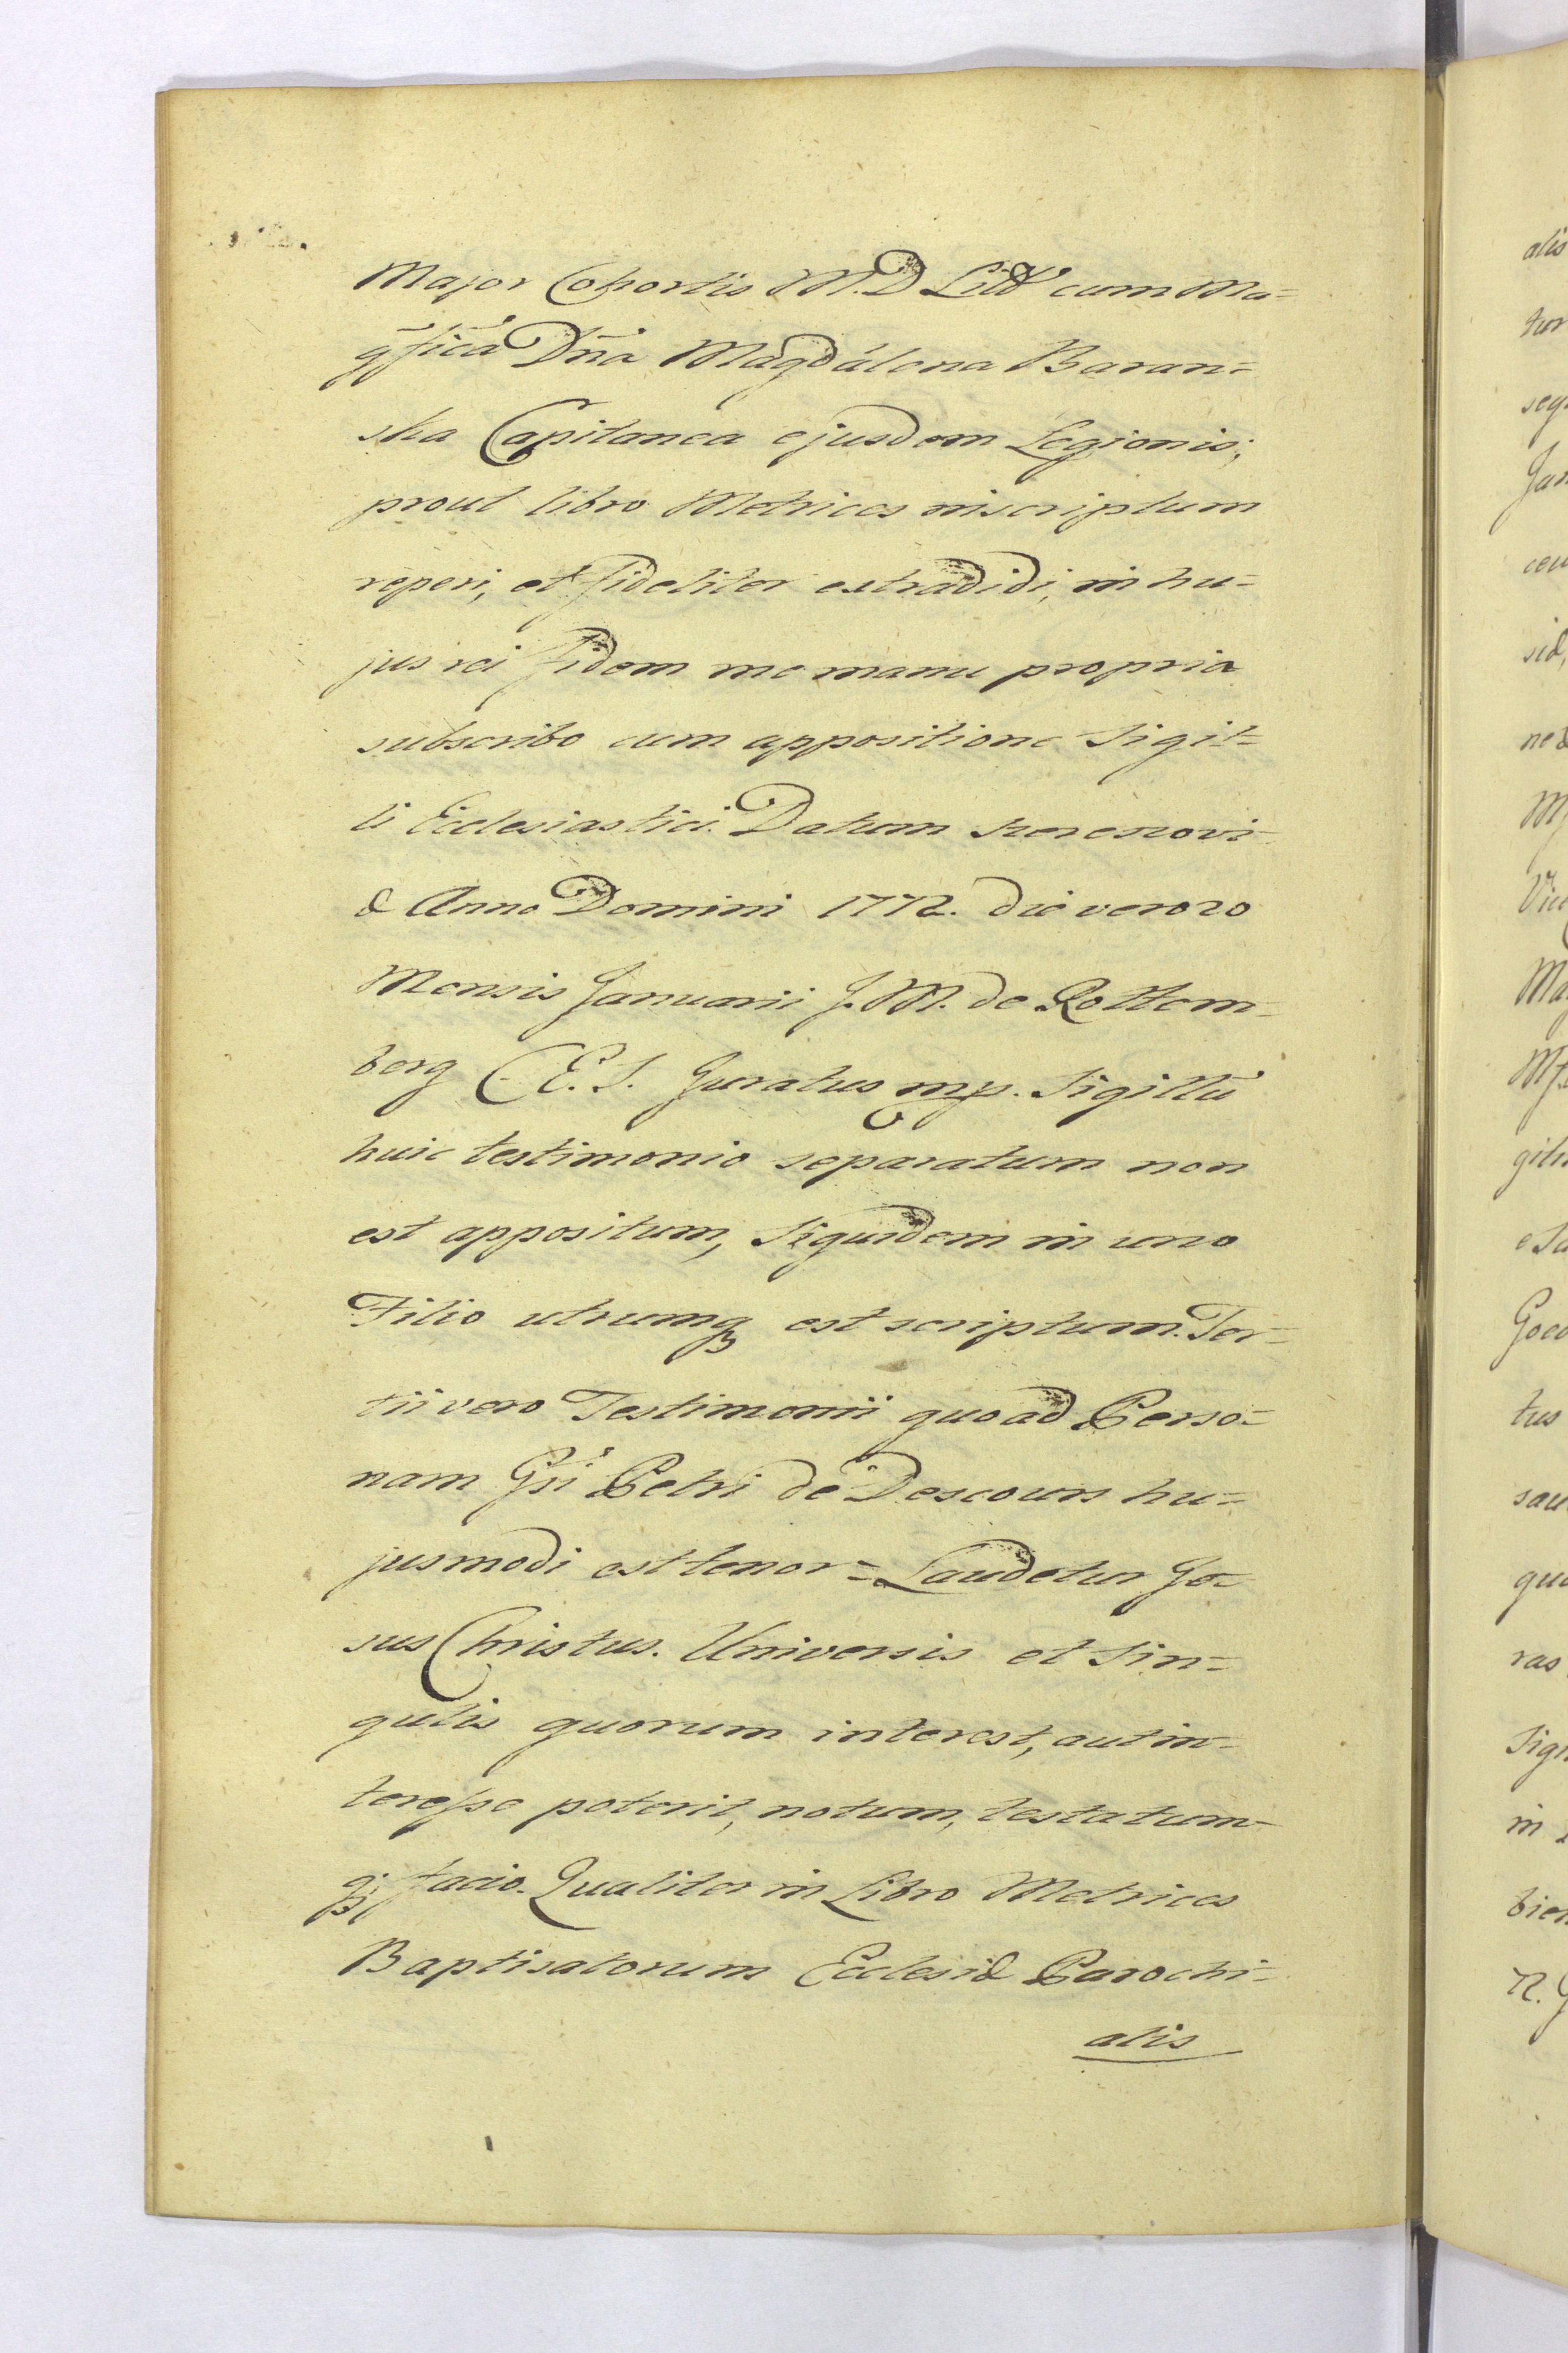 Major Cohortis M. D. Littæ cum Ma=
gficā Dn̄a Magdálena Baran=
ska Capitanea ejusdem Legionis;
prout libro Metrices inscriptum
reperi, et fideliter extradidi, in hu=
jus rei fidem me manu propria
subscribo cum appositione Sigil=
li Ecclesiastici. Datum
& Anno Domini 1772. die vero 20
Mensis Januarii J. M. de Rottem=
berg C. E. S. Juratus mp. Sigillū
huic testimonio separatum non
est appositum, Siquidem in uno
Filio utrumq3 est scriptum. Ter=
tii vero Testimonii quoad Perso=
nam Gsi Petri de Descours hu=
jusmodi est tenor = Laudetur Je=
sus Christus. Universis et Sin=
gulis quorum interest, aut in=
teresse poterit, notum, testatum=
q3 facio. Qualiter in Libro Metrices
Baptisatorum Ecclesiæ Parochi=
alis
alis
tur
Jan
sid,
gilis
tus
ras
in